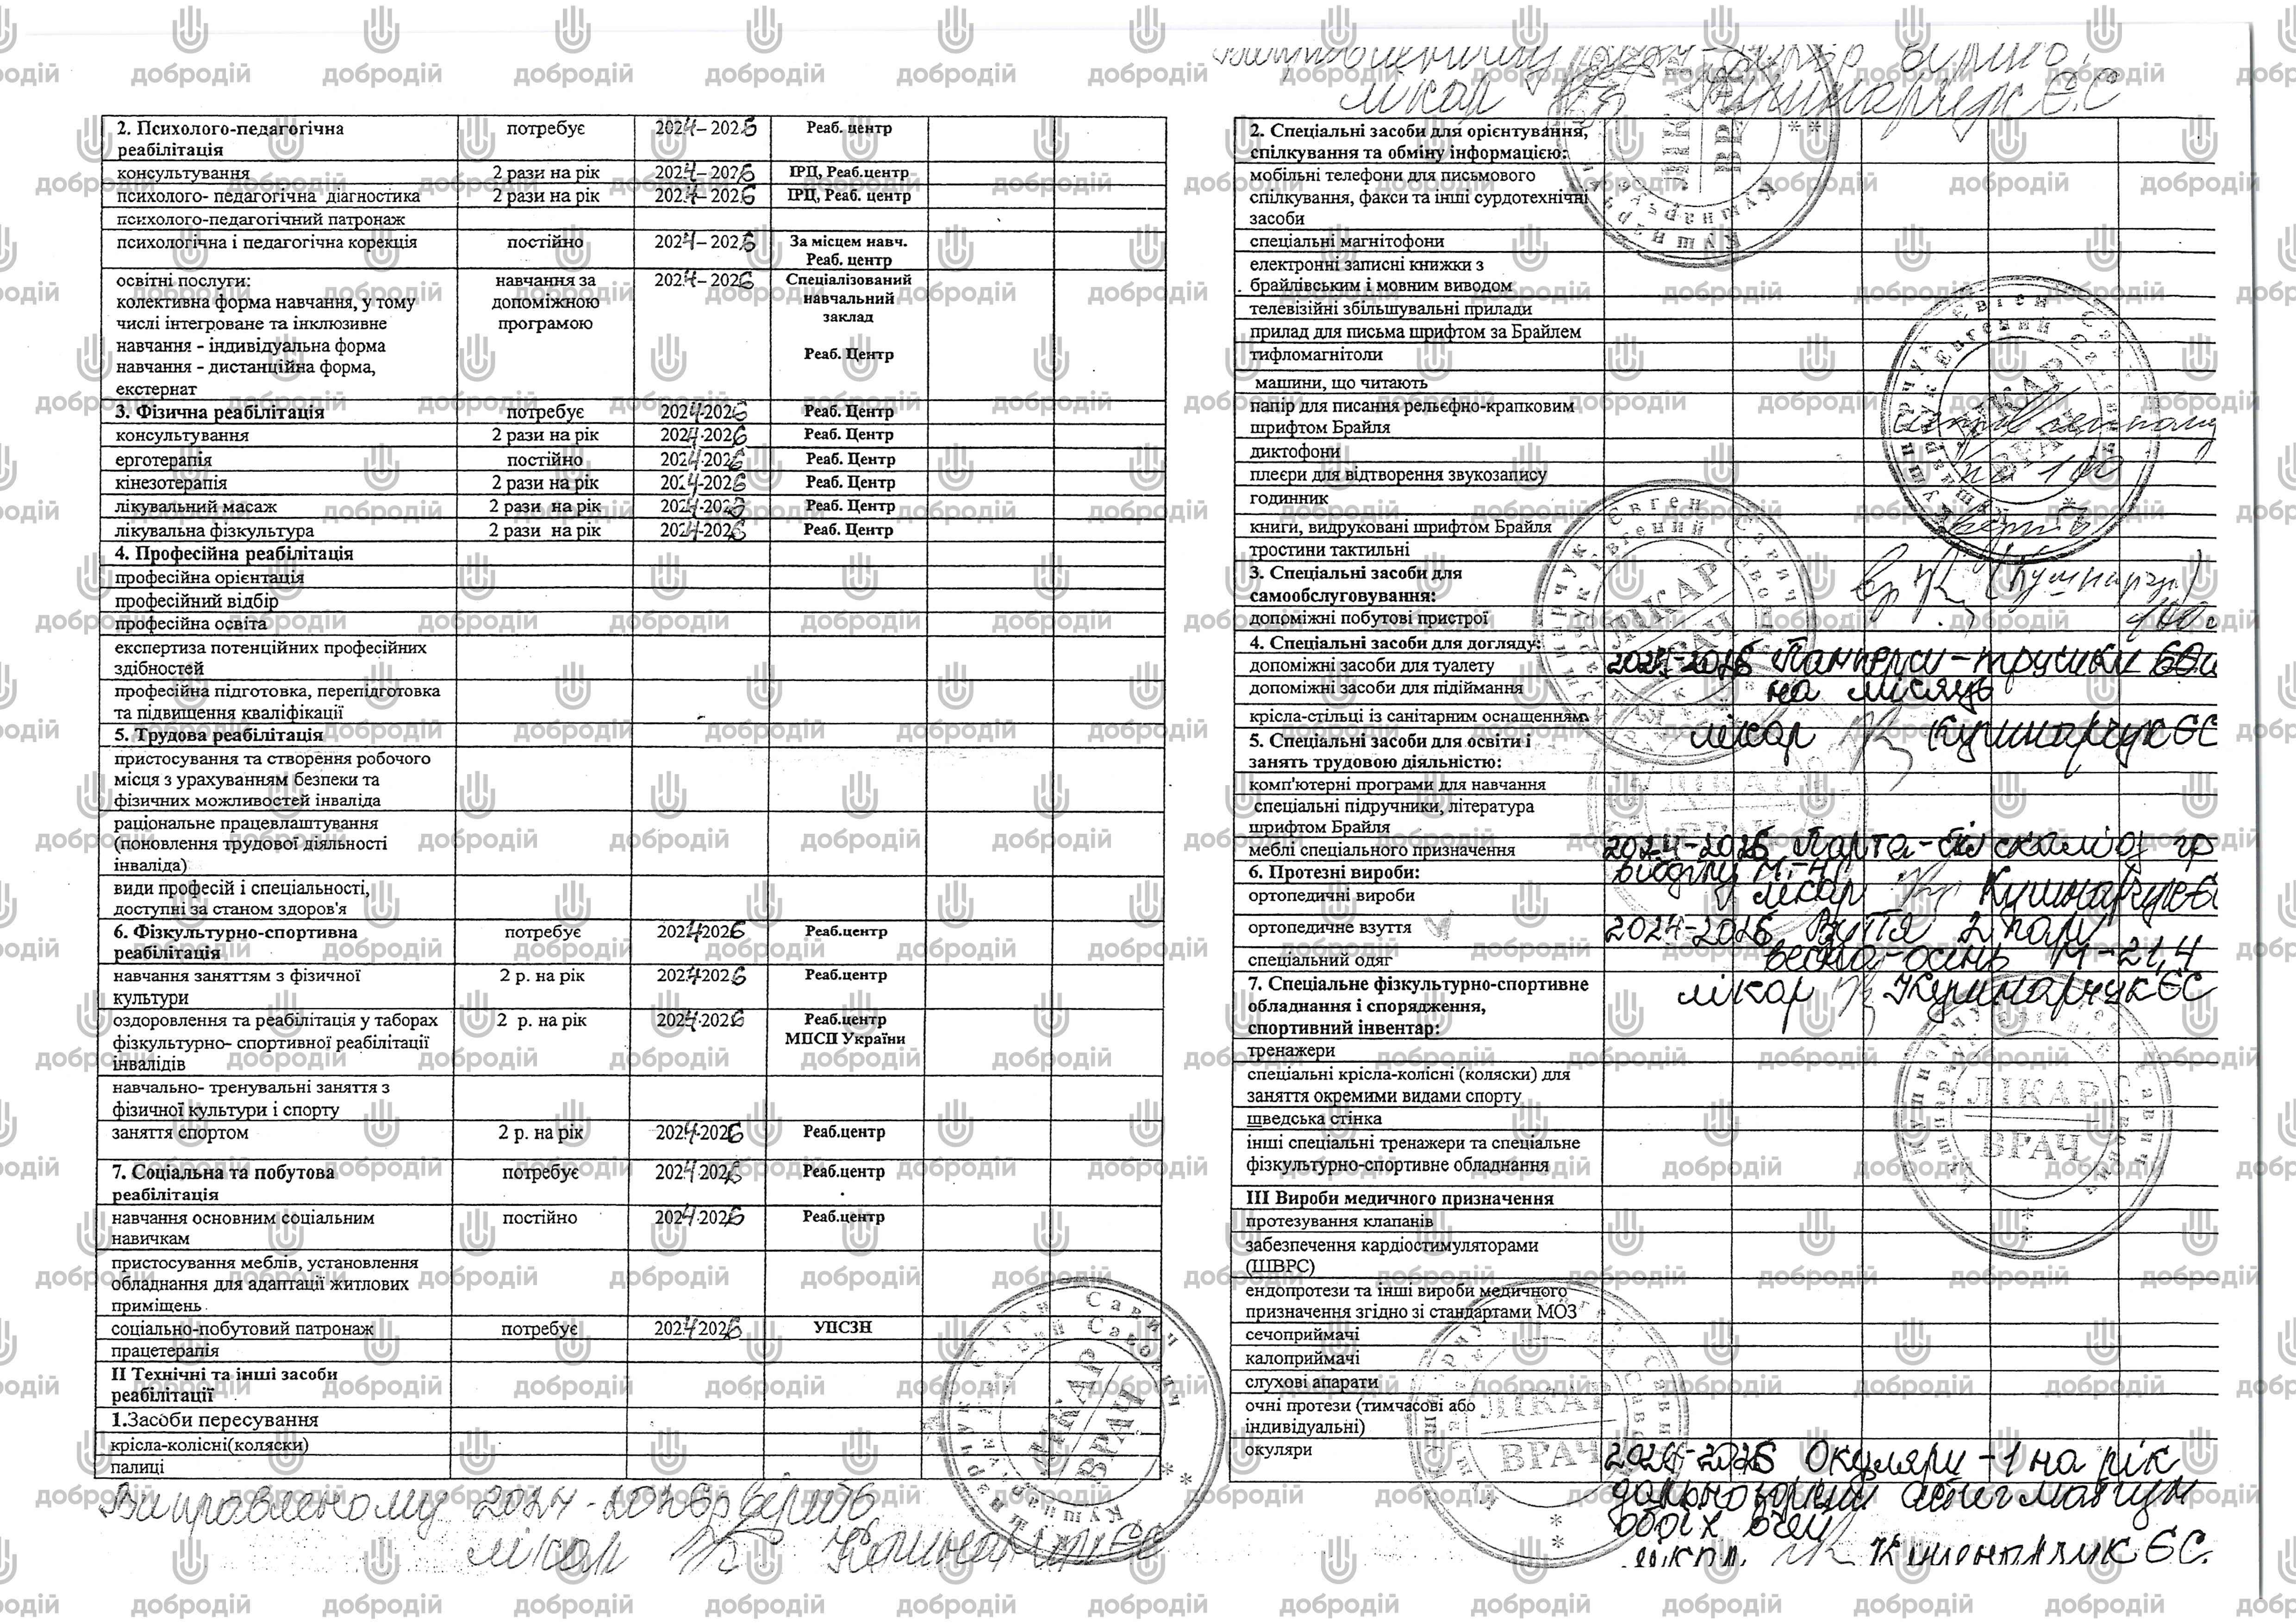 2. Психолого-педагогічна реабілітація потребує 2024-2026 Реаб. центр
консультування 2 рази на рік 2024-2026 ІРЦ, Реаб.центр
психолого- педагогічна діагностика 2 рази на рік 2024-2026 ІРЦ, Реаб. центр
психолого-педагогічний патронаж
психологічна і педагогічна корекція постійно 2024-2026 За місцем навч. Реаб. центр
освітні послуги: навчання за 2024-2026 Спеціалізований
колективна форма навчання, у тому допоміжною навчальний
числі інтегроване та інклюзивне програмою заклад
навчання - індивідуальна форма Реаб. Центр
навчання - дистанційна форма,
екстернат
3. Фізична реабілітація потребує 2024-2026 Реаб. Центр
консультування 2 рази на рік 2024-2026 Реаб. Центр
ерготерапія постійно 2024-2026 Реаб. Центр
кінезотерапія 2 рази на рік 2024-2026 Реаб. Центр
лікувальний масаж 2 рази на рік 2024-2026 Реаб. Центр
лікувальна фізкультура 2 рази на рік 2024-2026 Реаб. Центр
4. Професійна реабілітація
професійна орієнтація
професійний відбір
професійна освіта
експертиза потенційних професійних
здібностей
професійна підготовка, перепідготовка
та підвищення кваліфікації
5. Трудова реабілітація
пристосування та створення робочого
місця з урахуванням безпеки та
фізичних можливостей інваліда
раціональне працевлаштування
(поновлення трудової діяльності
інваліда)
види професій і спеціальності,
доступні за станом здоров'я
6. Фізкультурно-спортивна потребує 2024-2026 Реаб.центр
реабілітація
навчання заняттям з фізичної 2 р. на рік 2024-2026 Реаб.центр
культури
оздоровлення та реабілітація у таборах 2 р. на рік 2024-2026 Реаб.центр
фізкультурно- спортивної реабілітації МПСП України
інвалідів
навчально- тренувальні заняття з
фізичної культури і спорту
заняття спортом 2 р. на рік 2024-2026 Реаб.центр
7. Соціальна та побутова потребує 2024-2026 Реаб.центр
реабілітація
навчання основним соціальним постійно 2024-2026 Реаб.центр
навичкам
пристосування меблів, установлення
обладнання для адаптації житлових
приміщень
соціально-побутовий патронаж потребує 2024-2026 УПСЗН
працетерапія
ІІ Технічні та інші засоби
реабілітації
1.Засоби пересування
крісла-колісні(коляски)
палиці
Виправленому 2024-2026р вірить
лікар Кушнарчук ЄС
Виправленому 2024-2026р вірити
лікар Кушнарчук Є.С
2. Спеціальні засоби для орієнтування,
спілкування та обміну інформацією:
мобільні телефони для письмового
спілкування, факси та інші сурдотехнічні
засоби
спеціальні магнітофони
електронні записні книжки з
брайлівським і мовним виводом
телевізійні збільшувальні прилади
прилад для письма шрифтом за Брайлем
тифломагнітоли
машини, що читають
папір для писання рельєфно-крапковим
шрифтом Брайля
диктофони
плеєри для відтворення звукозапису
годинник
книги, видруковані шрифтом Брайля
тростини тактильні
3. Спеціальні засоби для
самообслуговування:
допоміжні побутові пристрої
4. Спеціальні засоби для догляду:
допоміжні засоби для туалету 2024-2026 Памперси-трусики 60ш
допоміжні засоби для підіймання на місяць
крісла-стільці із санітарним оснащенням лікар Кушнарчук ЄС
5. Спеціальні засоби для освіти і
занять трудовою діяльністю:
комп'ютерні програми для навчання
спеціальні підручники, література
шрифтом Брайля
меблі спеціального призначення 2024-2026 Парта
6. Протезні вироби:
ортопедичні вироби лікар Кушнарчук Є
ортопедичне взуття 2024-2026 Взуття 2 пари
спеціальний одяг весна-осінь М-21,4
7. Спеціальне фізкультурно-спортивне лікар Кушнарчук ЄС
обладнання і спорядження,
спортивний інвентар:
тренажери
спеціальні крісла-колісні (коляски) для
заняття окремими видами спорту
шведська стінка
інші спеціальні тренажери та спеціальне
фізкультурно-спортивне обладнання
ІІІ Вироби медичного призначення
протезування клапанів
забезпечення кардіостимуляторами
(ШВРС)
ендопротези та інші вироби медичного
призначення згідно зі стандартами МОЗ
сечоприймачі
калоприймачі
слухові апарати
очні протези (тимчасові або
індивідуальні)
окуляри 2024-2026 Окуляри - 1 на рік
далекозорий астигматизм
обох очей
лікар Кушнарчук ЄС.
ЛІКАР
ВРАЧ
Кушнарчук Євген Савич
добродій